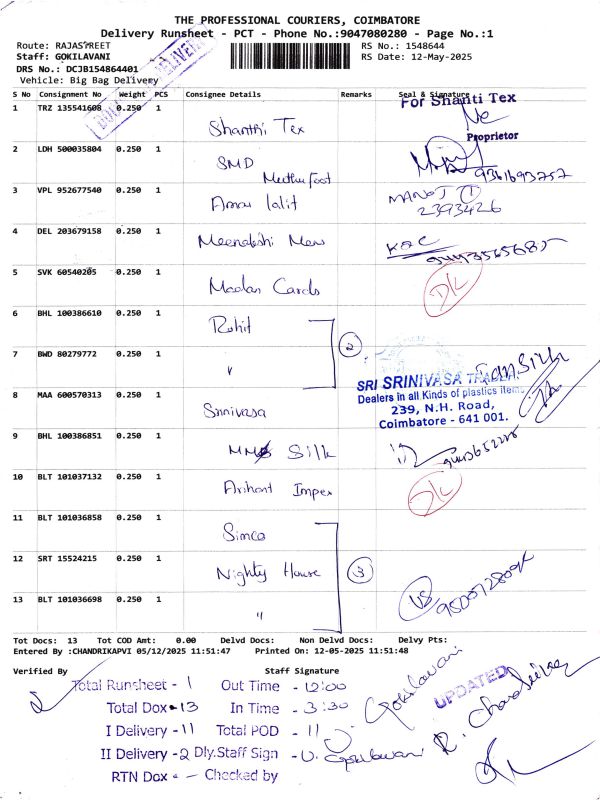 THE PROFESSIONAL COURIERS, COIMBATORE
Delivery Runsheet - PCT - Phone No.:9047080280 - Page No.:1
Route: RAJASTREET
Staff: GOKILAVANI
DRS No.: DCJB154864401
Vehicle: Big Bag Delivery
RS No.: 1548644
RS Date: 12-May-2025
S No Consignment No Weight PCS Consignee Details Remarks Seal & Signature
1 TRZ 135541608 0.250 1 Shanthi Tex
For Shanti Tex
Proprietor
2 LDH 500035804 0.250 1 SMD
9361693757
3 VPL 952677540 0.250 1 Amar lalit
MANOJ
2393426
4 DEL 203679158 0.250 1 Meenakshi Men
5 SVK 60540205 0.250 1 Madan Cards D/L
6 BHL 100386610 0.250 1 Rohit
2
7 BWD 80279772 0.250 1 "
SRI SRINIVASA TRADER
Dealers in all Kinds of plastics items
239, N.H. Road,
Coimbatore - 641 001.
8 MAA 600570313 0.250 1 Srinivasa
9 BHL 100386851 0.250 1 Silk
10 BLT 101037132 0.250 1 Arihant Impex D/L
11 BLT 101036858 0.250 1 Simco
12 SRT 15524215 0.250 1 Nighty House 3
13 BLT 101036698 0.250 1 "
Tot Docs: 13 Tot COD Amt: 0.00 Delvd Docs: Non Delvd Docs: Delvy Pts:
Entered By :CHANDRIKAPVI 05/12/2025 11:51:47 Printed On: 12-05-2025 11:51:48
Verified By Staff Signature
Total Runsheet - 1 Out Time - 12:00
Total Dox - 13 In Time - 3:30
I Delivery - 11 Total POD - 11
II Delivery - 2 Dly.Staff Sign - U. Gokilavani
RTN Dox - Checked by
Gokilavani
UPDATED